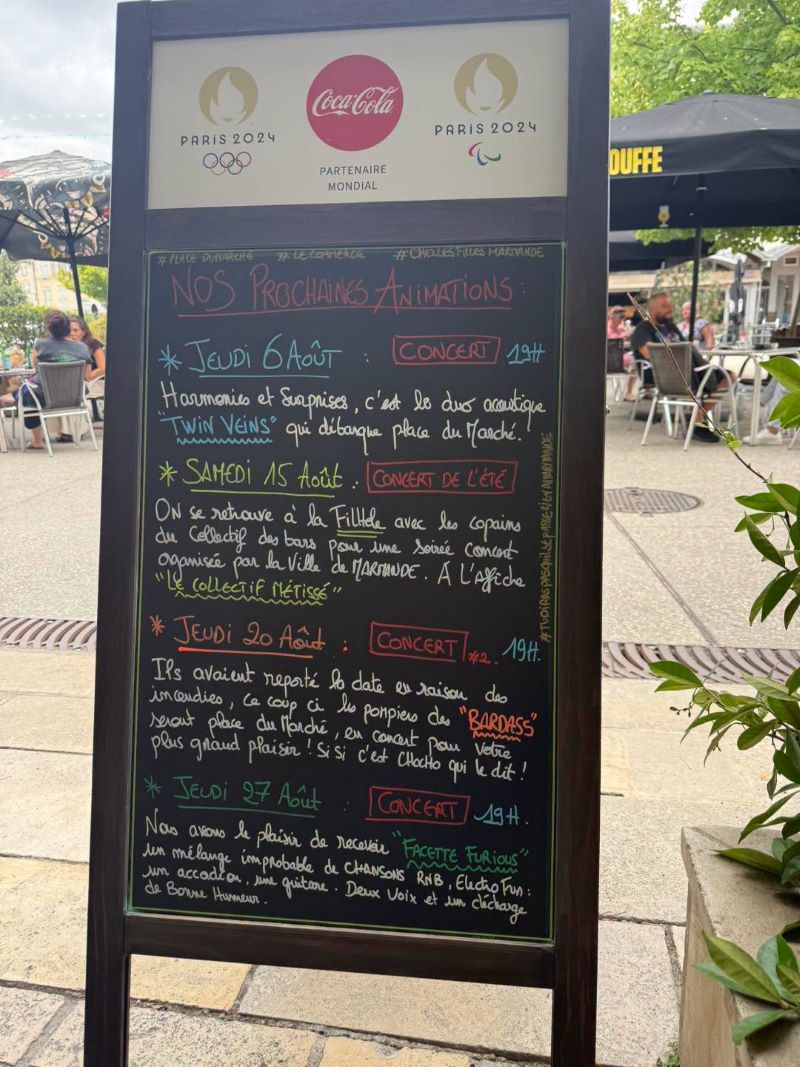 PARIS 2024
Coca-Cola
PARTENAIRE
MONDIAL
PARIS 2024
OUFFE
#PLACE DUMARCHE #LECOMMERCE #CHELLESFILLES MARMANDE
NOS PROCHAINES ANIMATIONS:
* JEUDI 6 AOÛT : CONCERT 19H
Harmonies et Surprises, c'est le duo acoustique
"TWIN VEINS" qui débarque place du Marché.
* SAMEDI 15 AOÛT. CONCERT DE L'ÉTÉ
ON se retrouve à la Filhole avec les copains
du Collectif des bars pour une soirée concert
organisée par la Ville de MARMANDE. A L'Affiche
"LE COLLECTIF MÉTISSÉ"
* JEUDI 20 AOÛT : CONCERT #2. 19H.
Ils avaient reporté la date en raison des
incendies, ce coup ci les pompiers des "BARDASS"
seront place du Marché, en concert pour votre
plus grand plaisir! Si Si c'est CHOCHO qui le dit!
* JEUDI 27 AOÛT : CONCERT 19H.
Nous avons le plaisir de recevoir "FACETTE FURIOUS"
un mélange improbable de CHANSONS RNB, ElectroFun:
un accordéon, une guitare. Deux Voix et un décharge
de Bonne Humeur.